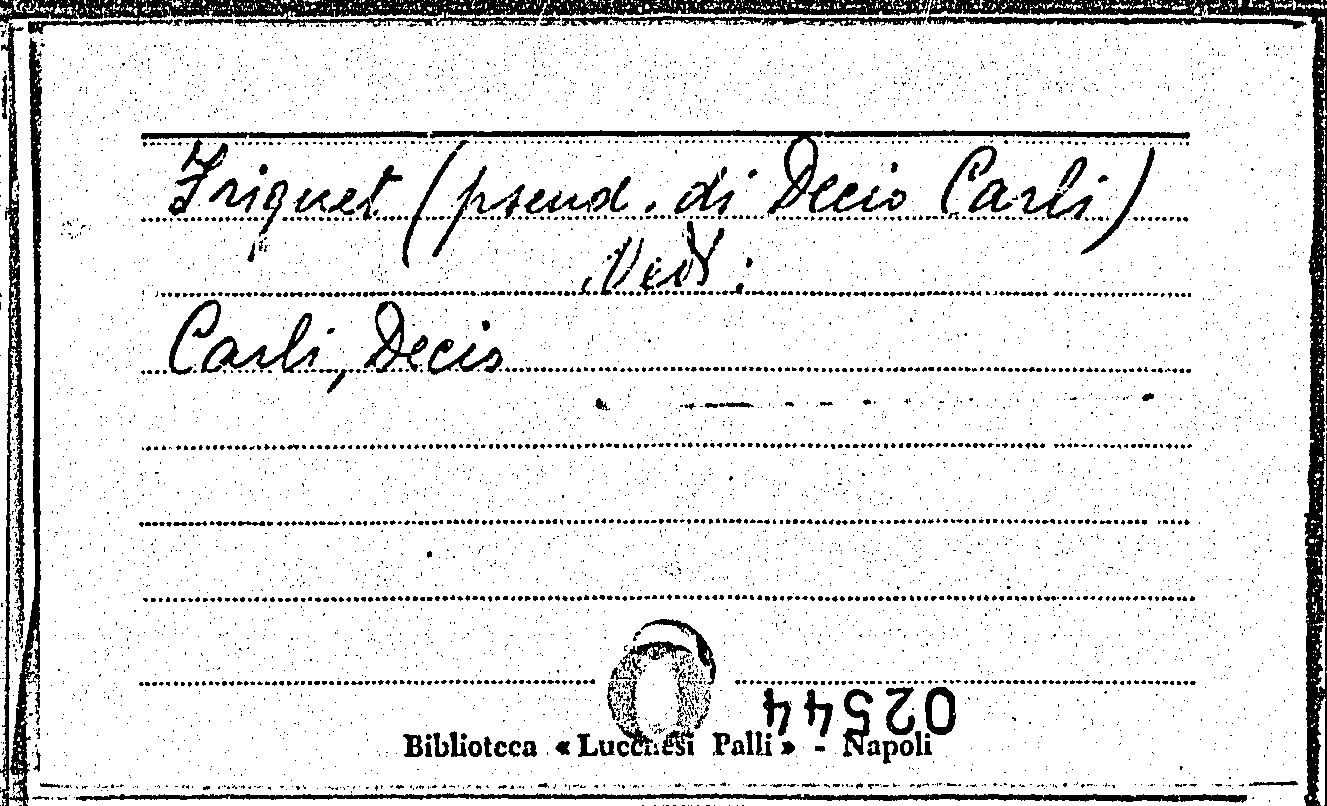 Friquet (pseud. di Decio Carli)
Vedi:
Carli, Decio
02544
Biblioteca « Lucchesi Palli » - Napoli